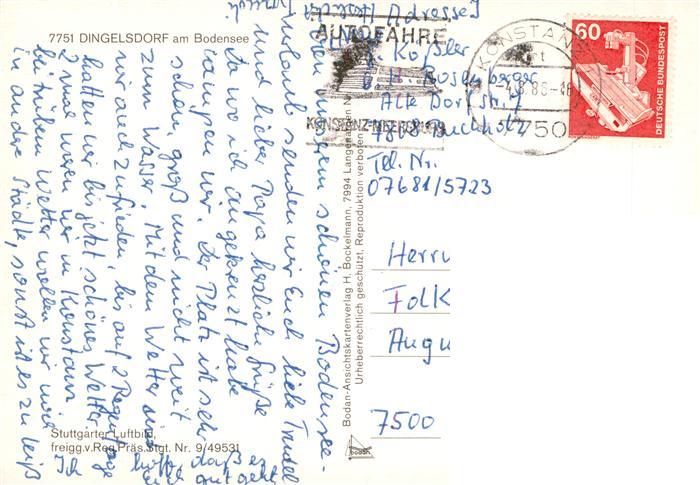 7751 DINGELSDORF am Bodensee
von unserem schönen Bodensee-
urlaub senden wir Euch liebe Trudel
und lieber Papa herzliche Grüße
Da wo ich angekreuzt habe
wir. Der Platz ist sehr
schön, groß und nicht weit
zum Wasser. Mit dem Wetter sind
wir auch zufrieden, bis auf 2 Regentage
hatten wir bis jetzt schönes Wetter.
2 mal waren wir in Konstanz
bei trübem Wetter wollen wir mal
in andere Städte, sonst ist es zu heiß
Ich hoffe, daß es
Euch gut geht
Stuttgarter Luftbild,
freigg.v.Reg.Präs.Stgt. Nr. 9/49531
Bodan-Ansichtskartenverlag H. Bockelmann, 7994 Langenargen
Urheberrechtlich geschützt, Reproduktion verboten
bodan
Adresse
AUTOFÄHRE
KONSTANZ-MEERSBURG
KONSTANZ
7750
60
DEUTSCHE BUNDESPOST
Kößler
H. Rosenberger
Alte Dorfstr. 7
7808 Buchholz
Tel. Nr.
07681/5723
Herrn
Folk
Augu
7500